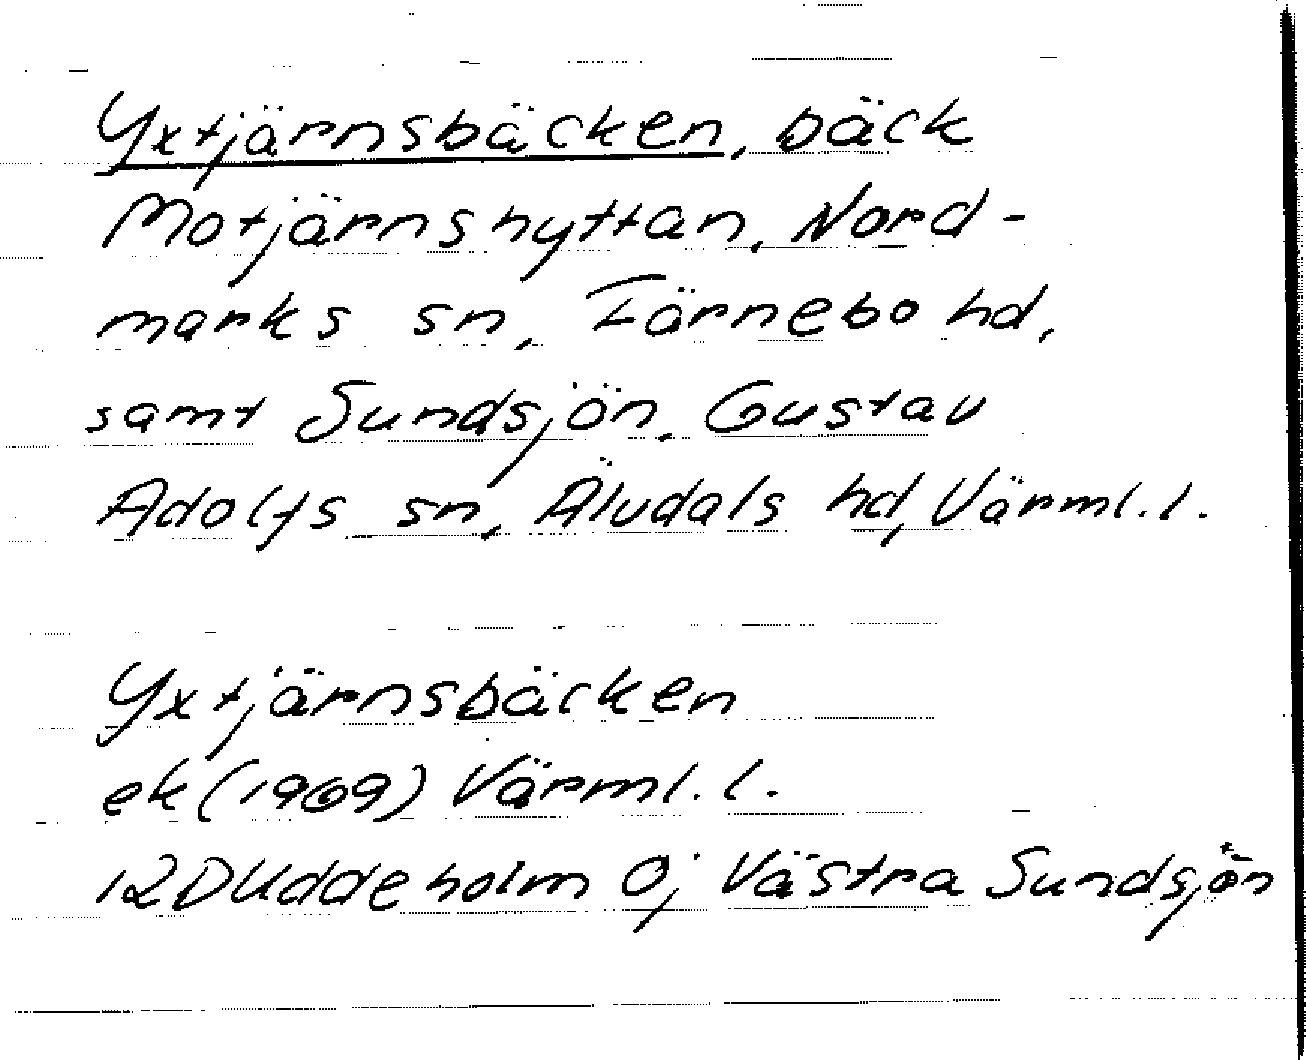 Yxtjärnsbäcken, bäck
Motjärnshyttan, Nord-
marks sn, Färnebo hd,
samt Sundsjön, Gustav
Adolfs sn, Älvdals hd, Värml. l.
Yxtjärnsbäcken
ek (1969) Värml. l.
12D Uddeholm 0j Västra Sundsjön